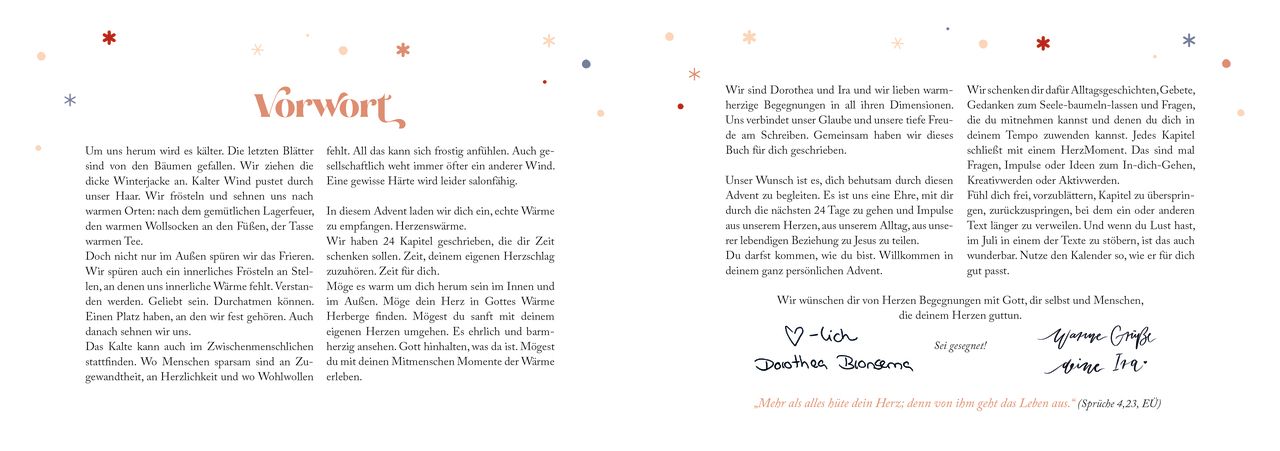 Vorwort
Um uns herum wird es kälter. Die letzten Blätter
sind von den Bäumen gefallen. Wir ziehen die
dicke Winterjacke an. Kalter Wind pustet durch
unser Haar. Wir frösteln und sehnen uns nach
warmen Orten: nach dem gemütlichen Lagerfeuer,
den warmen Wollsocken an den Füßen, der Tasse
warmen Tee.
Doch nicht nur im Außen spüren wir das Frieren.
Wir spüren auch ein innerliches Frösteln an Stel-
len, an denen uns innerliche Wärme fehlt. Verstan-
den werden. Geliebt sein. Durchatmen können.
Einen Platz haben, an den wir fest gehören. Auch
danach sehnen wir uns.
Das Kalte kann auch im Zwischenmenschlichen
stattfinden. Wo Menschen sparsam sind an Zu-
gewandtheit, an Herzlichkeit und wo Wohlwollen
fehlt. All das kann sich frostig anfühlen. Auch ge-
sellschaftlich weht immer öfter ein anderer Wind.
Eine gewisse Härte wird leider salonfähig.
In diesem Advent laden wir dich ein, echte Wärme
zu empfangen. Herzenswärme.
Wir haben 24 Kapitel geschrieben, die dir Zeit
schenken sollen. Zeit, deinem eigenen Herzschlag
zuzuhören. Zeit für dich.
Möge es warm um dich herum sein im Innen und
im Außen. Möge dein Herz in Gottes Wärme
Herberge finden. Mögest du sanft mit deinem
eigenen Herzen umgehen. Es ehrlich und barm-
herzig ansehen. Gott hinhalten, was da ist. Mögest
du mit deinen Mitmenschen Momente der Wärme
erleben.
Wir sind Dorothea und Ira und wir lieben warm-
herzige Begegnungen in all ihren Dimensionen.
Uns verbindet unser Glaube und unsere tiefe Freu-
de am Schreiben. Gemeinsam haben wir dieses
Buch für dich geschrieben.
Unser Wunsch ist es, dich behutsam durch diesen
Advent zu begleiten. Es ist uns eine Ehre, mit dir
durch die nächsten 24 Tage zu gehen und Impulse
aus unserem Herzen, aus unserem Alltag, aus unse-
rer lebendigen Beziehung zu Jesus zu teilen.
Du darfst kommen, wie du bist. Willkommen in
deinem ganz persönlichen Advent.
Wir schenken dir dafür Alltagsgeschichten, Gebete,
Gedanken zum Seele-baumeln-lassen und Fragen,
die du mitnehmen kannst und denen du dich in
deinem Tempo zuwenden kannst. Jedes Kapitel
schließt mit einem HerzMoment. Das sind mal
Fragen, Impulse oder Ideen zum In-dich-Gehen,
Kreativwerden oder Aktivwerden.
Fühl dich frei, vorzublättern, Kapitel zu übersprin-
gen, zurückzuspringen, bei dem ein oder anderen
Text länger zu verweilen. Und wenn du Lust hast,
im Juli in einem der Texte zu stöbern, ist das auch
wunderbar. Nutze den Kalender so, wie er für dich
gut passt.
Wir wünschen dir von Herzen Begegnungen mit Gott, dir selbst und Menschen,
die deinem Herzen guttun.
♡-lich
Dorothea Bronsema
Sei gesegnet!
Warme Grüße
deine Ira
„Mehr als alles hüte dein Herz; denn von ihm geht das Leben aus.“ (Sprüche 4,23, EÜ)